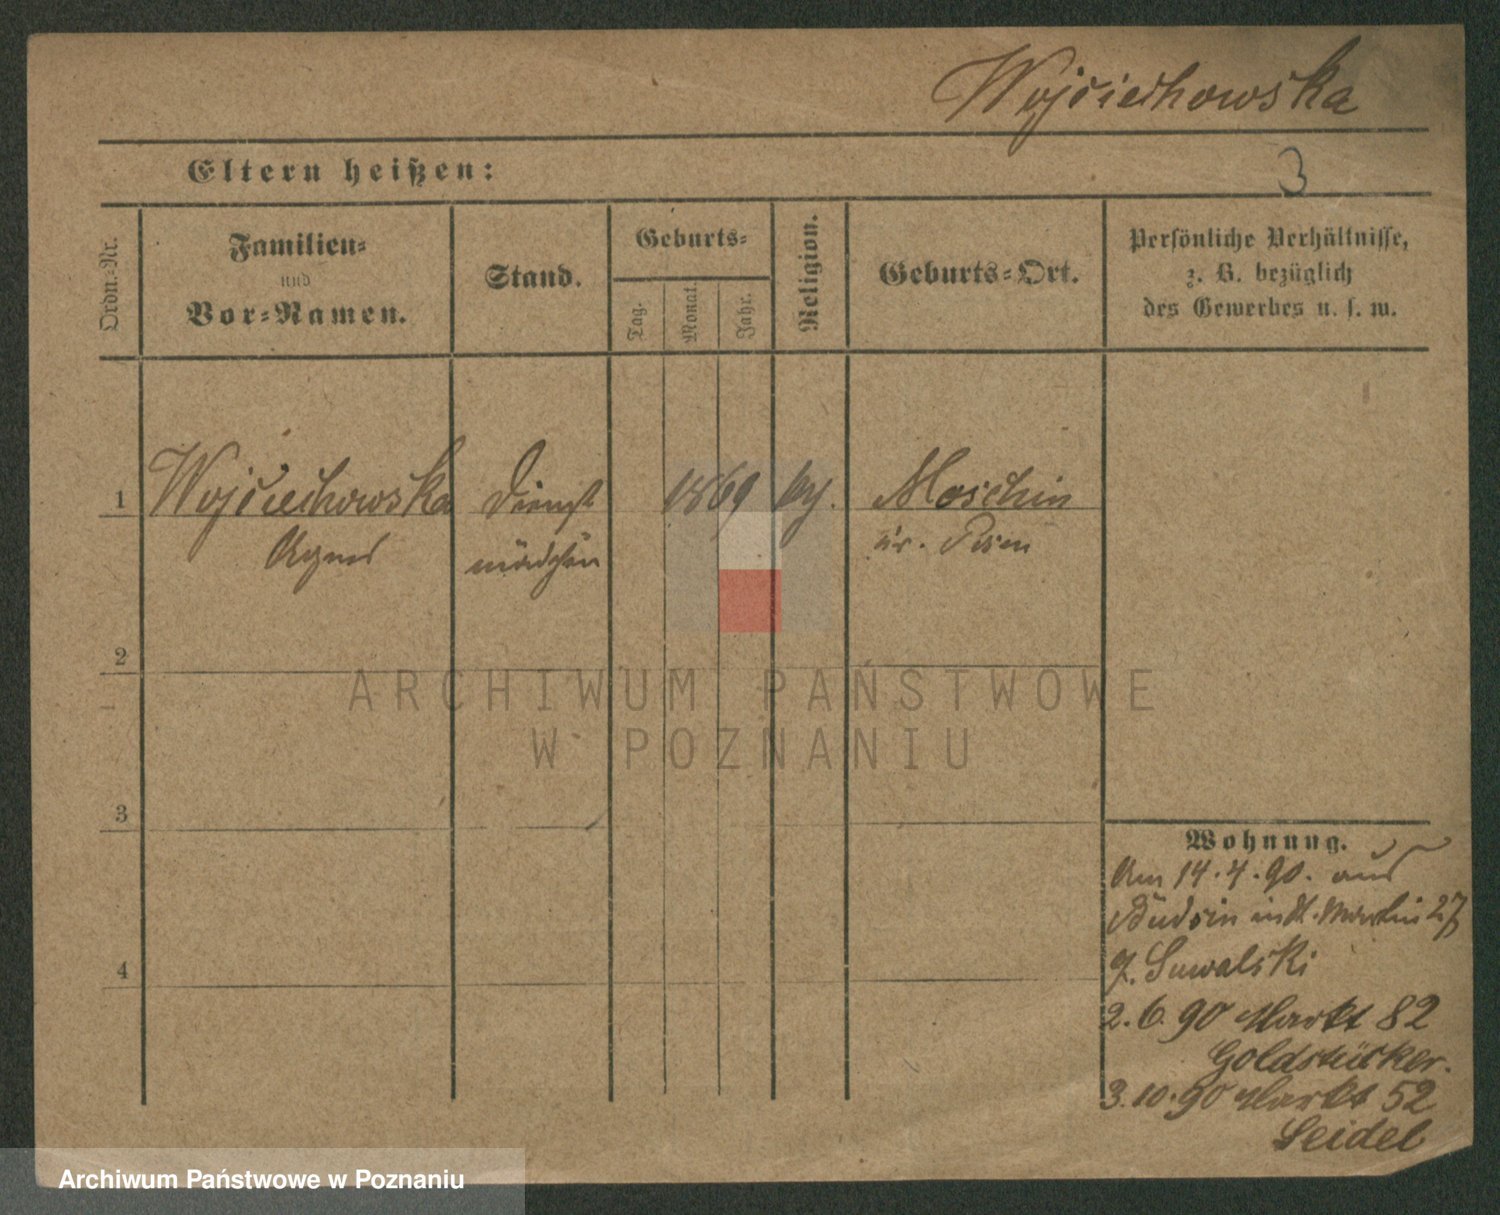 Wojciechowska
3
Eltern heißen:
Ordn.-Nr.
Familien-
und
Vor-Namen.
Stand.
Geburts-
Tag.
Monat.
Jahr.
Religion.
Geburts-Ort.
Persönliche Verhältnisse,
z. B. bezüglich
des Gewerbes u. s. w.
1
Wojciechowska
Agnes
Dienst
mädchen
1869
Moschin
Kr. Posen
2
3
4
Wohnung.
Am 14. 4. 90. aus
Budsin St. Martin 27
Suwalski
2. 6. 90 Markt 82
Goldstücker.
3. 10. 90 Markt 52
Seidel
ARCHIWUM PAŃSTWOWE
W POZNANIU
Archiwum Państwowe w Poznaniu